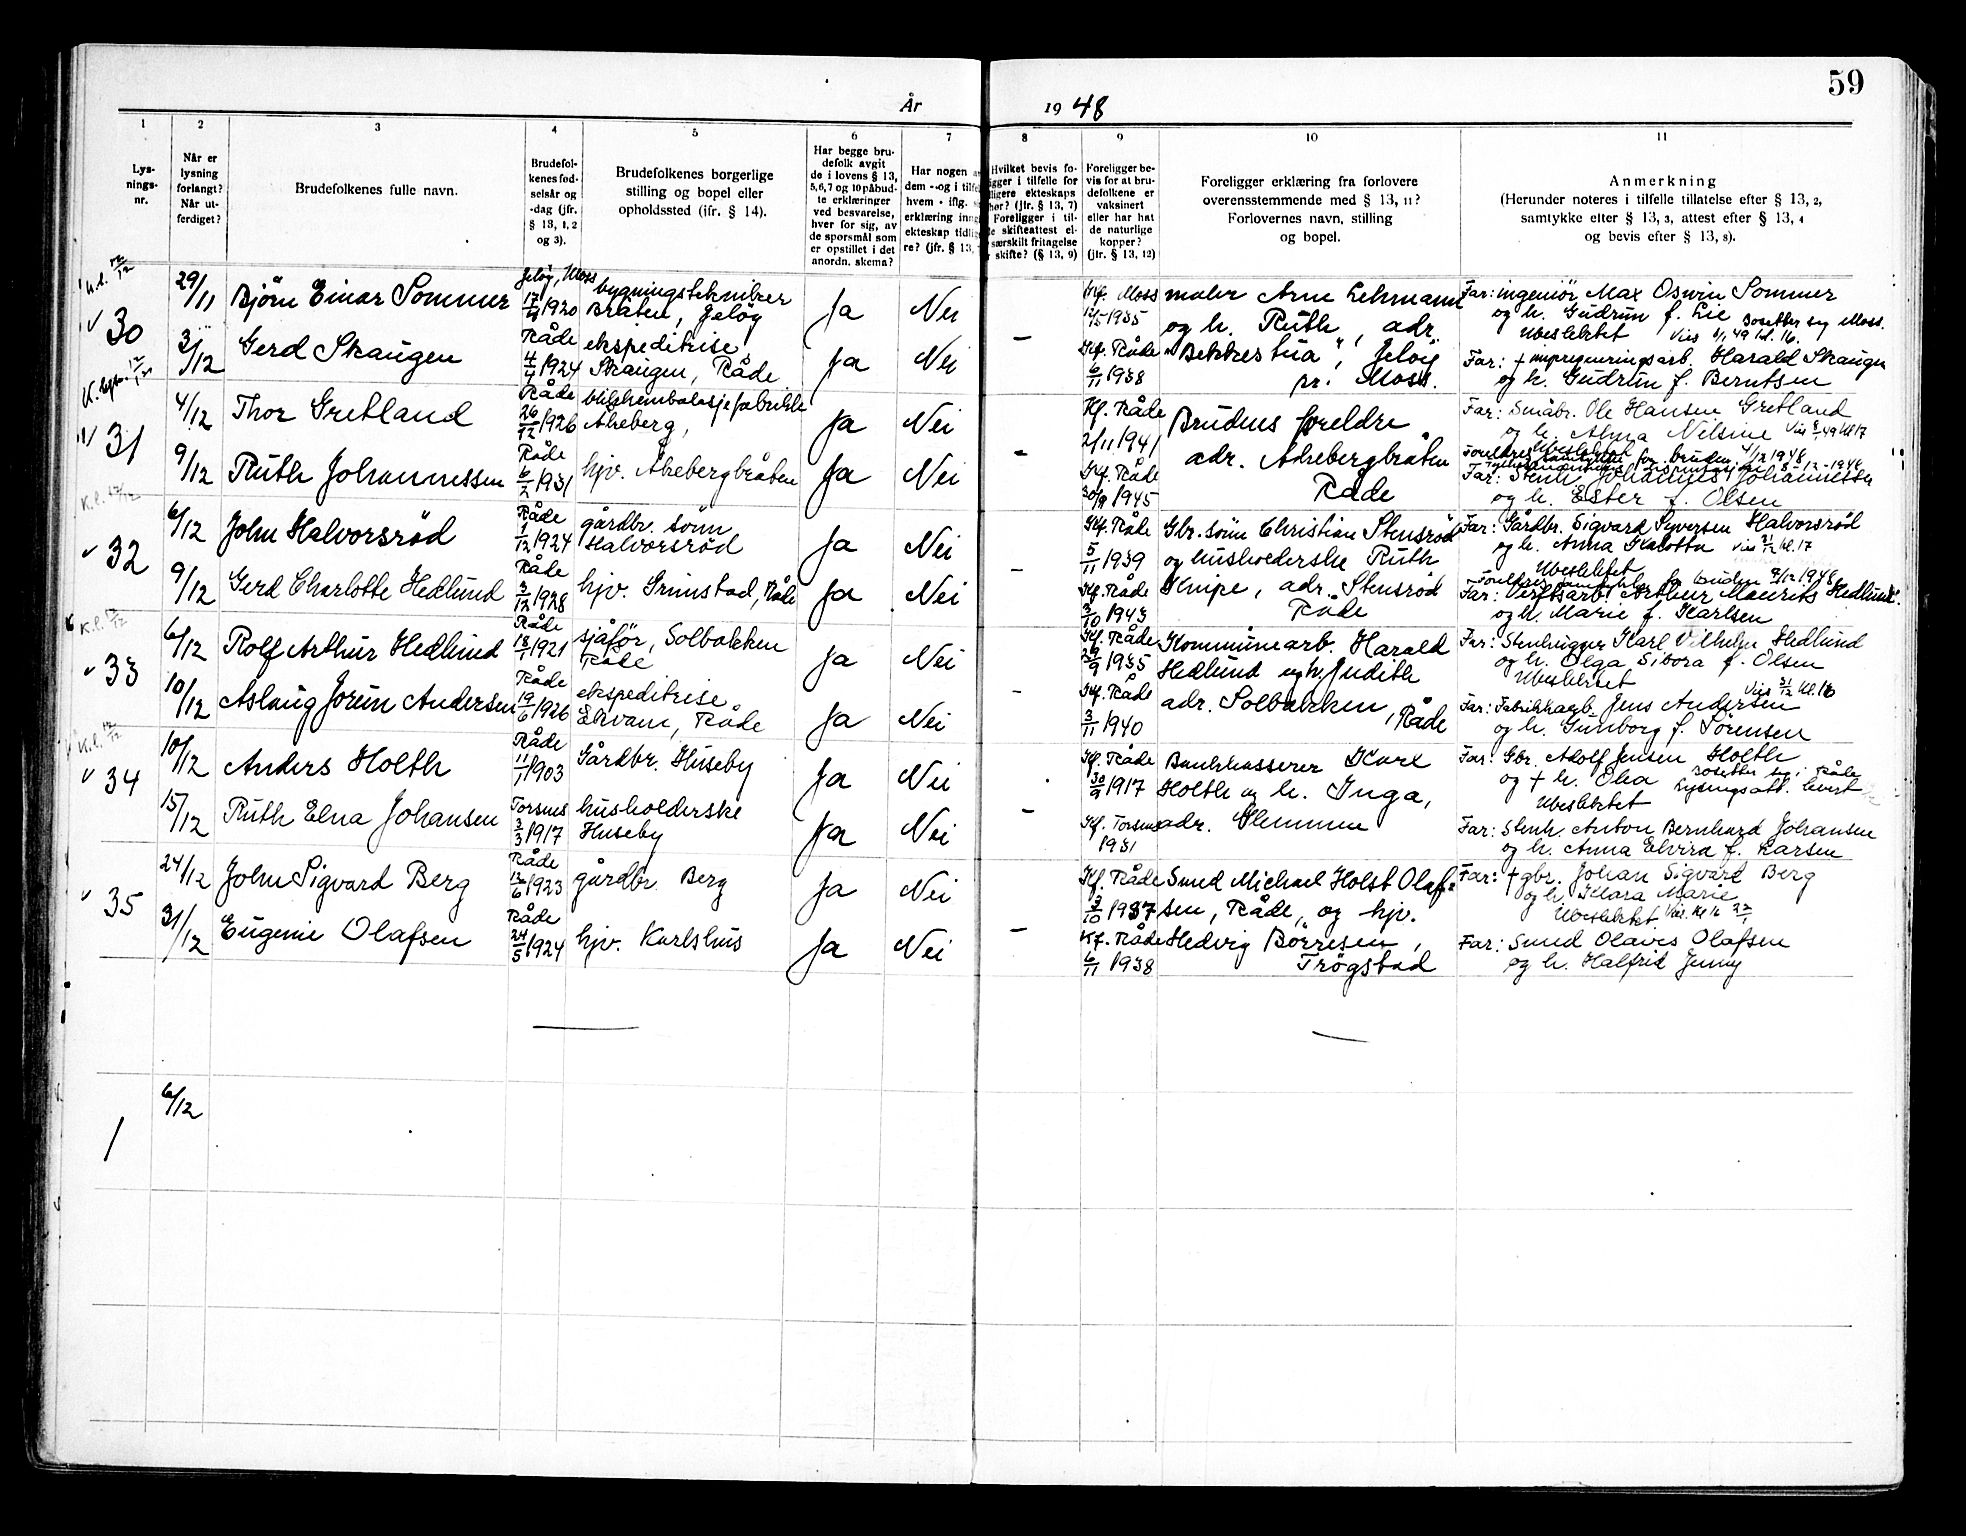 59
År 1948
1 2 3 4 5 6 7 8 9 10 11
Lys-
nings-
nr.
Når er
lysning
forlangt?
Når ut-
ferdiget?
Brudefolkenes fulle navn.
Brudefol-
kenes fød-
selsår og
-dag (jfr.
§ 13, 1, 2
og 3).
Brudefolkenes borgerlige
stilling og bopel eller
opholdssted (ifr. § 14).
Har begge bru-
defolk avgit
de i lovens § 13,
5, 6, 7 og 10 påbud-
te erklæringer
ved besvarelse,
hver for sig, av
de spørsmål som
er opstillet i det
anordn. skema?
Har nogen a
dem - og i tilfe
hvem - iflg.
erklæring inng
ekteskap tidlig
re? (jfr. § 13,
Hvilket bevis fo-
igger i tilfelle for
ligere ekteskaps
hør? (jfr. § 13, 7)
Foreligger i til-
le skifteattest el-
særskilt fritagelse
skifte? (§ 13, 9)
Foreligger be-
vis for at bru-
defolkene er
vaksinert
eller har hat
de naturlige
kopper?
(jfr. § 13, 12)
Foreligger erklæring fra forlovere
overensstemmende med § 13, 11?
Forlovernes navn, stilling
og bopel.
Anmerkning
(Herunder noteres i tilfelle tillatelse efter § 13, 2,
samtykke efter § 13, 3, attest efter § 13, 4
og bevis efter § 13, 8).
30
29/11 Bjørn Einar Sommer
Jeløy, Moss
1920
bygningstekniker
Bråten, Jeløy
Ja Nei
Moss
1935
maler Arne Lehmann
og h. Ruth, adr.
"Bekkestua", Jeløy
pr. Moss.
Far: ingeniør Max Oswin Sommer
og h. Gudrun f. Lie Bosetter seg Moss.
Ubeslektet
3/12 Gerd Skaugen
Råde
4/4 1924
ekspeditrise
Skaugen, Råde
Ja Nei
–
Kf. Råde
6/11 1938
Far: + impregneringsarb. Harald Skaugen
og h. Gudrun f. Berntsen
31
4/12 Thor Gretland
Råde
26/12 1926
blikkembalasjefabrikk
Akeberg,
Ja Nei
Kf. Råde
2/11 1941
Brudens foreldre
adr. Akebergbråten
Råde
Far: Småbr. Ole Hansen Gretland
og h. Alma Nelsine
9/12 Ruth Johannessen
Råde
6/2 1931
hjv. Akebergbråten
Ja Nei
–
Kf. Råde
30/9 1945
Foreldres samtykke for bruden 4/12 1948
Far: Stenh. Johannes Johannessen
og h. Ester f. Olsen
32
6/12 John Halvorsrød
Råde
1/12 1924
gårdbr. sønn
Halvorsrød
Ja Nei
Kf. Råde
5/11 1939
Gbr. sønn Christian Stensrød
og husholderske Ruth
Knipe, adr. Stensrød
Råde
Far: Gårdbr. Sigvard Syversen Halvorsrød
og h. Anna Vies 31/12 kl. 17
Ubeslektet
9/12 Gerd Charlotte Hedlund
Råde
3/12 1928
hjv. Grimstad, Råde
Ja Nei
–
Kf. Råde
3/10 1943
Foreldres samtykke for bruden 9/12 1948
Far: Verftsarb. Arthur Maurits Hedlund.
og h. Marie f. Karlsen
33
6/12 Rolf Arthur Hedlund
Råde
18/1 1921
sjåfør, Solbakken
Råde
Ja Nei
Kf. Råde
29/9 1935
Kommunearb. Harald
Hedlund og h. Judith
adr. Solbakken, Råde
Far: Stenhugger Karl Vilhelm Hedlund
og h. Olga Sibora f. Olsen
Ubeslektet
10/12 Aslaug Jorun Andersen
Råde
19/6 1926
ekspeditrise
Ekvam, Råde
Ja Nei
–
Kf. Råde
3/11 1940
Vies 31/12 kl. 16
Far: Fabrikkarb. Jens Andersen
og h. Gunborg f. Sørensen
34
10/12 Anders Holth
Råde
11/1 1903
Gårdbr. Huseby
Ja Nei
Kf. Råde
30/9 1917
Bankkasserer Karl
Holth og h. Inga,
adr. Glemmen
Far: Gbr. Adolf Jensen Holth
og + h. Olea Bosetter seg i Råde
Ubeslektet Lysingsatt. levert
15/12 Ruth Elna Johansen
Torsnes
3/3 1917
husholderske
Huseby
Ja Nei
–
Kf. Torsnes
1931
Far: Stenh. Anton Bernhard Johansen
og h. Anna Elvira f. Larsen
35
24/12 John Sigvard Berg
Råde
12/6 1923
gårdbr. Berg
Ja Nei
Kf. Råde
3/10 1937
Smed Michael Holst Olaf-
sen, Råde, og hjv.
Hedvig Børresen,
Trøgstad
Far: + gbr. Johan Sigvard Berg
og h. Klara Marie
Ubeslektet.
31/12 Eugenie Olafsen
Råde
24/5 1924
hjv. Karlshus
Ja Nei
–
Kf. Råde
6/11 1938
Far: Smed Olaves Olafsen
og h. Halfrid Jenny
6/12
1